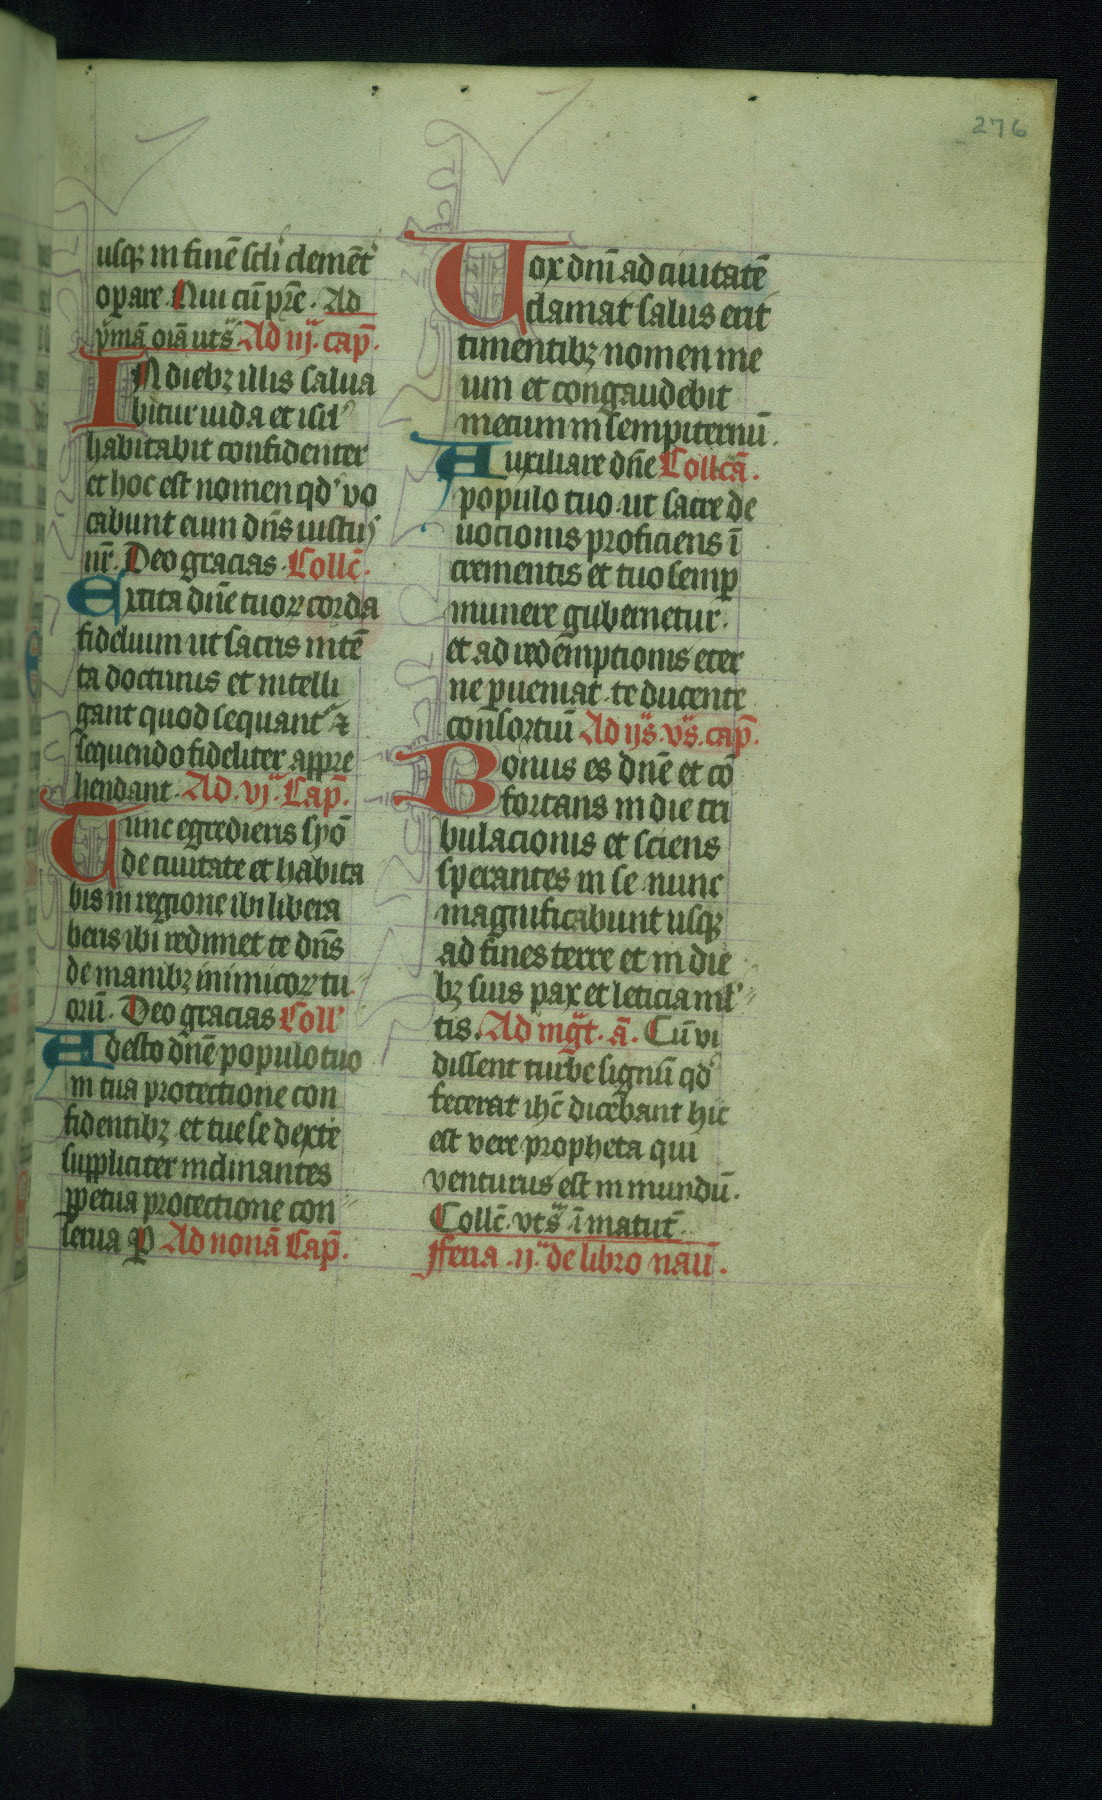 276
usqꝫ in finē scłi clemēt᷑
oꝑare. Qui cū pr̄e. Ad
pͥmā oīa uts̄ Ad iij. cap̄.
In diebꝫ illis salua
bitur iuda et isłr
habitabit confidenter
et hoc est nomen qd᷑ vo
cabunt eum dn̄s iustꝰ
nr̄. Deo gracias. Collc̄.
Excita dn̄e tuoꝝ corda
fidelium ut sacris intē
ta doctrinis et intelli
gant quod sequant᷑ ⁊
sequendo fideliter appre
hendant. Ad .vj. Cap̄.
Tunc egredieris syō
de ciuitate et habita
bis in regione ibi libera
beris ibi redimet te dn̄s
de manibꝫ inimicoꝝ tu
orū. Deo gracias Coll᷑
Adesto dn̄e populo tuo
in tua protectione con
fidentibꝫ et tue se dexte
suppliciter inclinantes
ꝑpetua protectione con
serua ꝑ Ad nonā Cap̄.
Uox dn̄i ad ciuitatē
clamat salus erit
timentibꝫ nomen me
um et congaudebit
mecum in sempiternū.
Auxiliare dn̄e Collcā.
populo tuo ut sacre de
uocionis proficiens ī
crementis et tuo semꝑ
munere gubernetur.
et ad redēmptionis eter
ne ꝑueniat te ducente
consortiū Ad ijs. vs̄. cap̄.
Bonus es dn̄e et cō
fortans in die tri
bulacionis et sciens
sperantes in se nunc
magnificabunt usqꝫ
ad fines terre et in die
bꝫ suis pax et leticia ml᷑
tis. Ad mgt̄. ā. Cū vi
dissent turbe signū qd᷑
fecerat ihc̄ dicēbant hic
est vere propheta qui
venturus est in mundū.
Collc̄. vts̄ ī matut̄.
Fferia .ij. de libro naū.